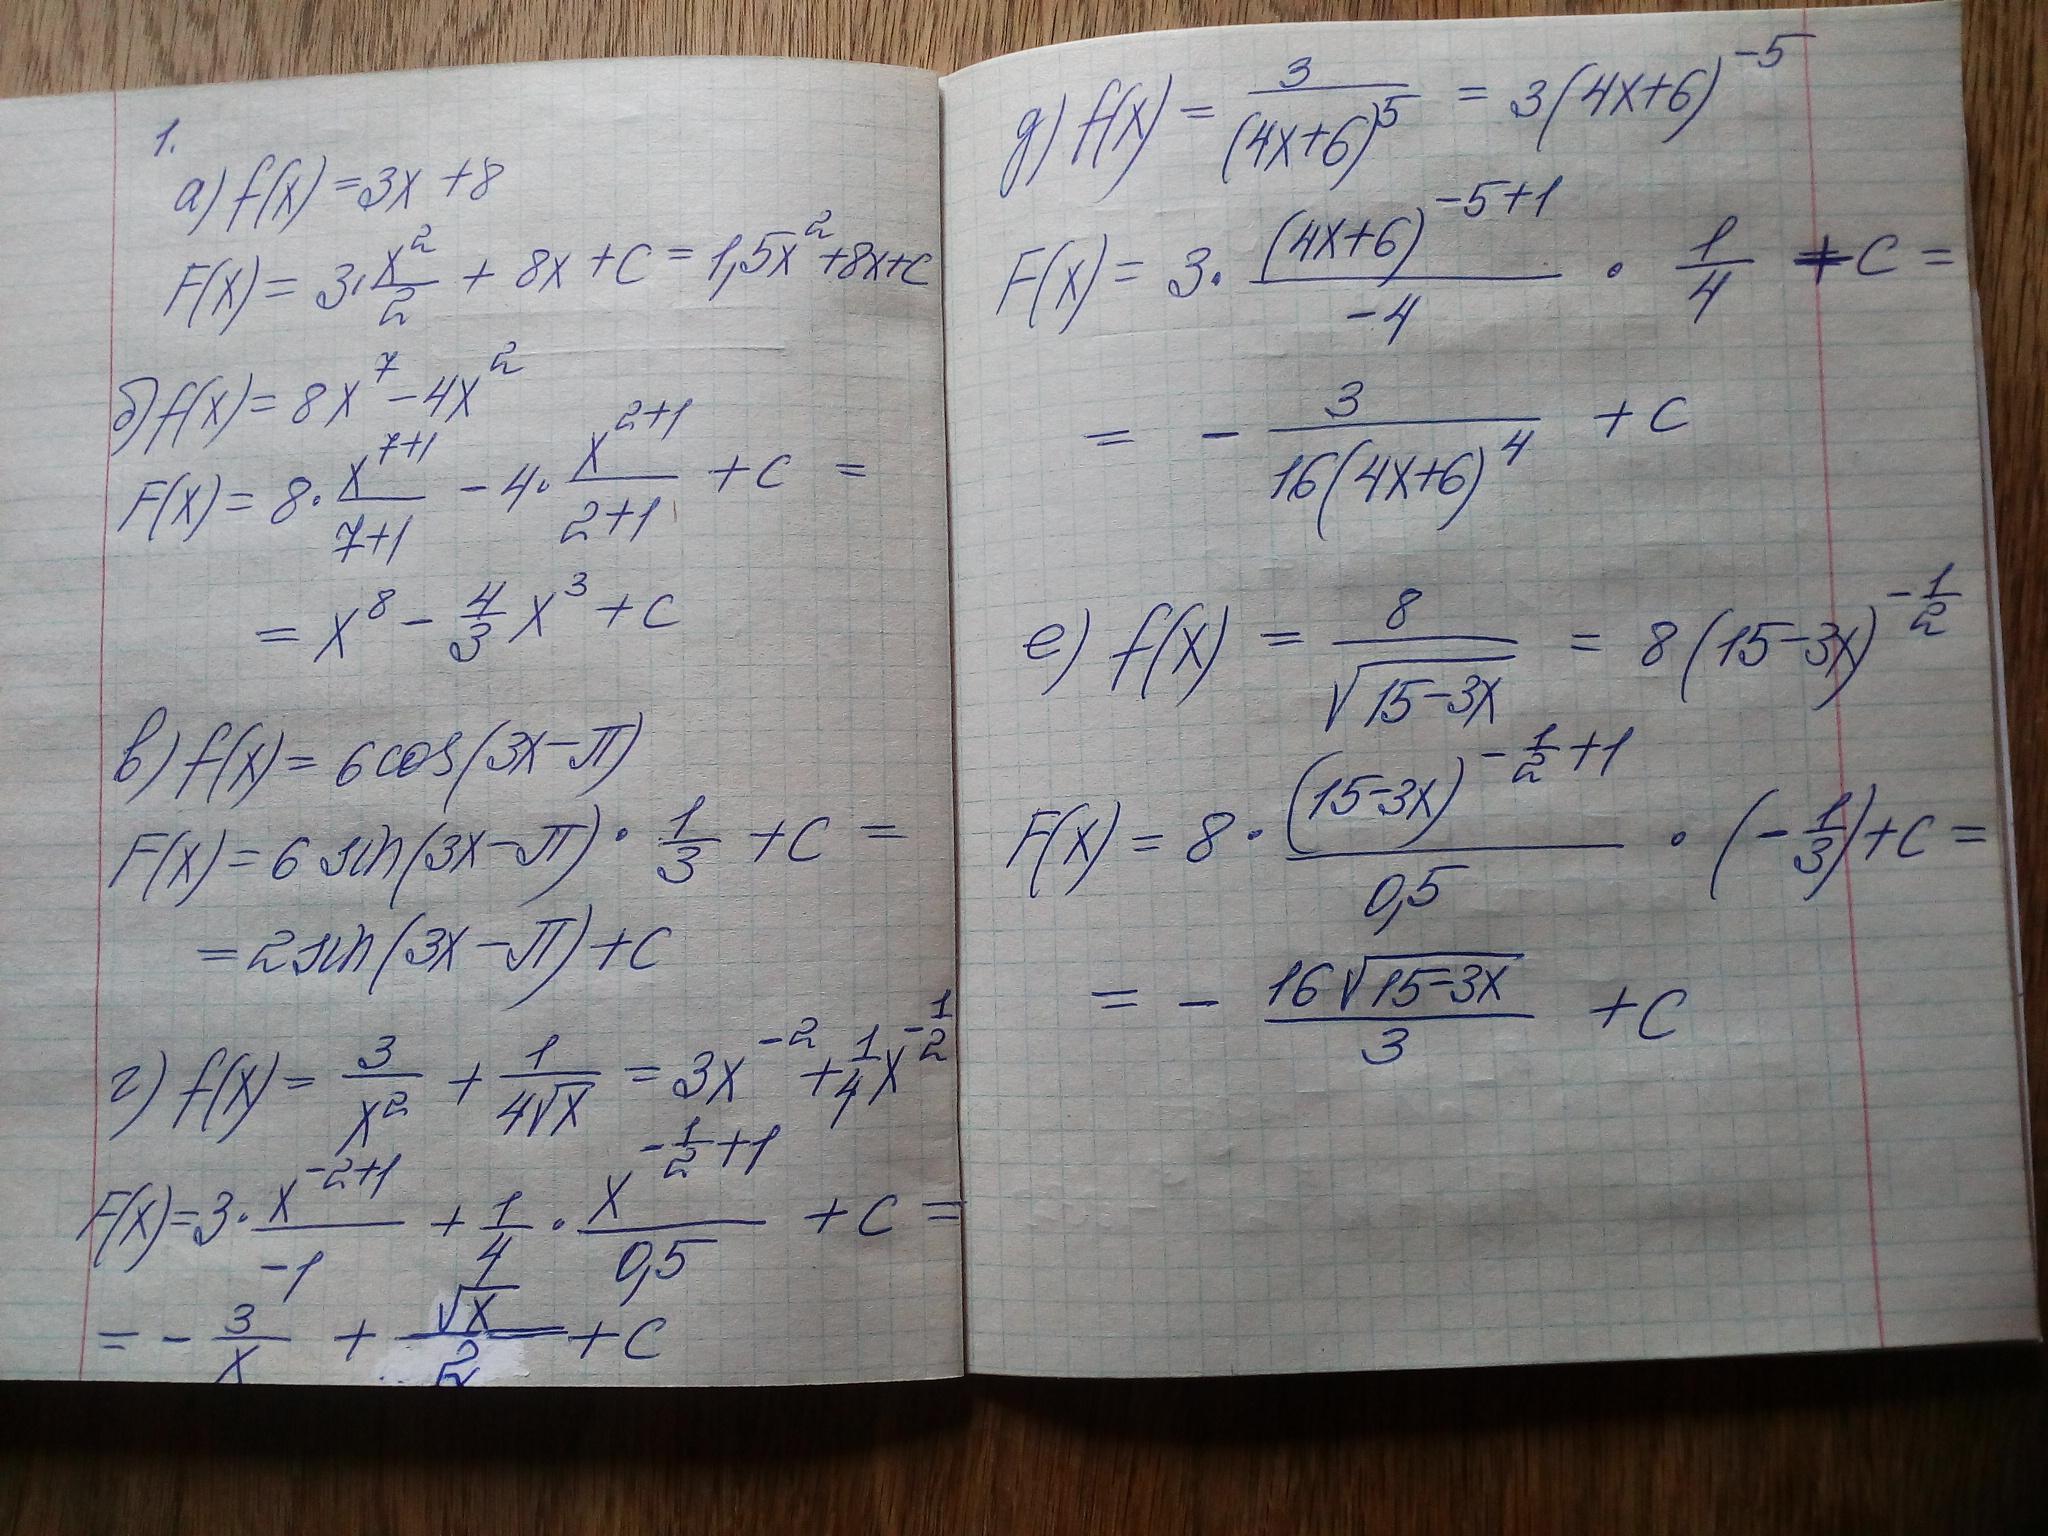 1.
а) f(x) = 3x + 8
F(x) = 3 · x²/2 + 8x + C = 1,5x² + 8x + C
б) f(x) = 8x⁷ − 4x²
F(x) = 8 · x^(7+1)/(7+1) − 4 · x^(2+1)/(2+1) + C =
= x⁸ − 4/3 x³ + C
в) f(x) = 6 cos(3x − π)
F(x) = 6 sin(3x − π) · 1/3 + C =
= 2 sin(3x − π) + C
г) f(x) = 3/x² + 1/(4√x) = 3x^(−2) + 1/4 x^(−1/2)
F(x) = 3 · x^(−2+1)/(−1) + 1/4 · x^(−1/2+1)/0,5 + C =
= − 3/x + √x/2 + C
д) f(x) = 3/(4x+6)⁵ = 3(4x+6)^(−5)
F(x) = 3 · (4x+6)^(−5+1)/(−4) · 1/4 + C =
= − 3/(16(4x+6)⁴) + C
е) f(x) = 8/√(15−3x) = 8(15−3x)^(−1/2)
F(x) = 8 · (15−3x)^(−1/2+1)/0,5 · (−1/3) + C =
= − 16√(15−3x)/3 + C